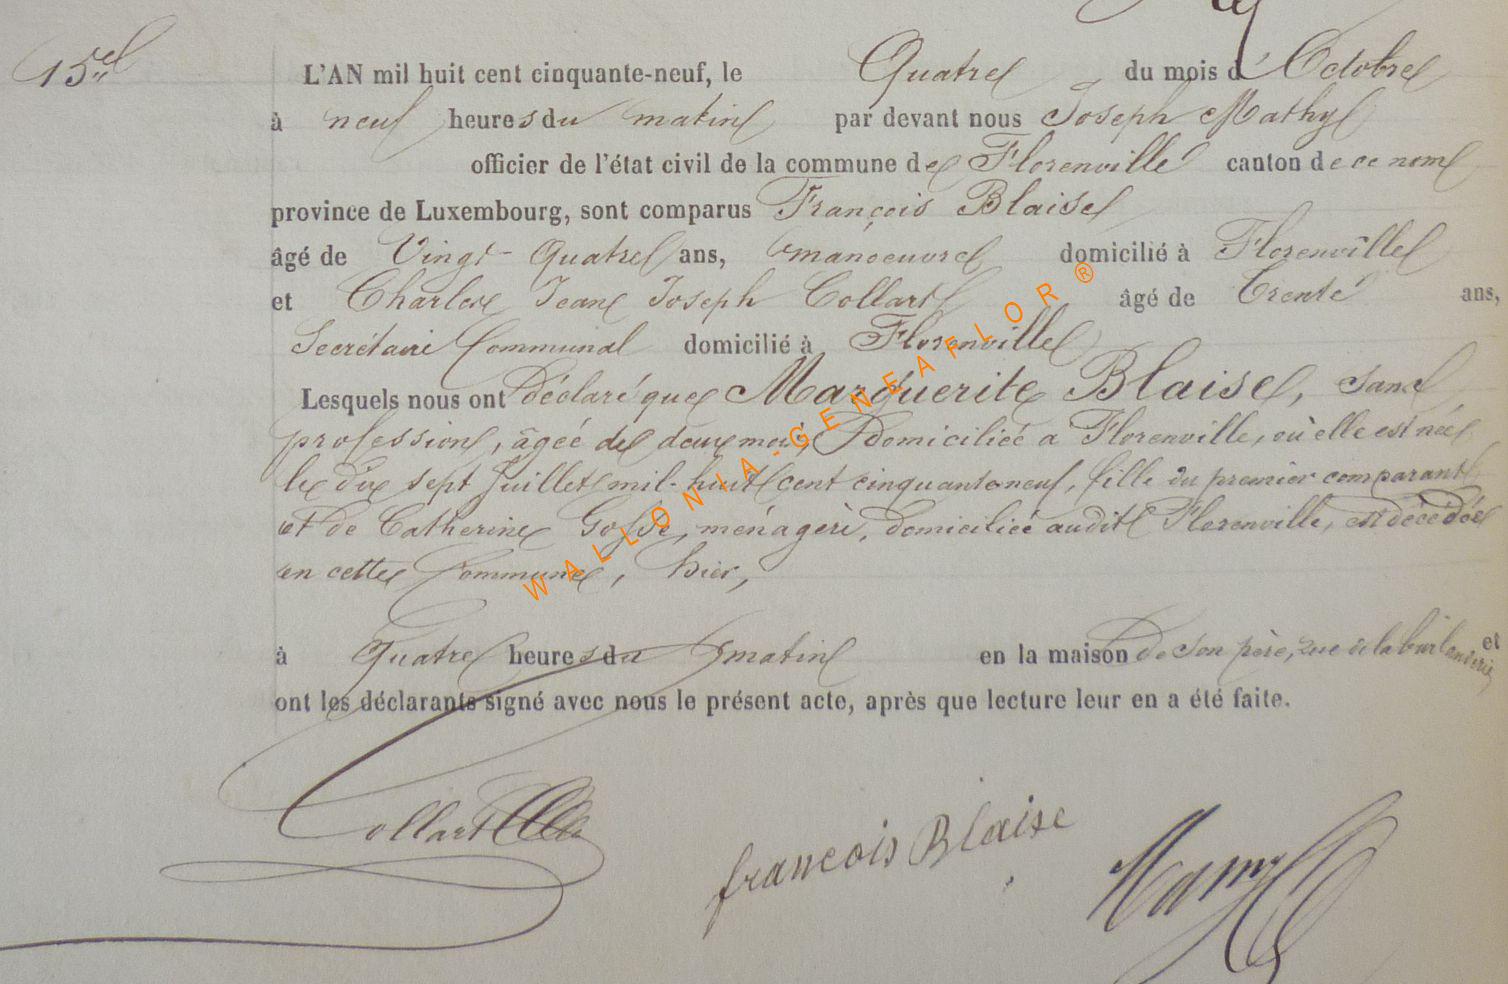 15e
L'AN mil huit cent cinquante-neuf, le Quatre du mois d'Octobre
à neuf heures du matin par devant nous Joseph Mathy
officier de l'état civil de la commune de Florenville canton de ce nom
province de Luxembourg, sont comparus François Blaise
âgé de Vingt-Quatre ans, manoeuvre domicilié à Florenville
et Charles Jean Joseph Collart âgé de Trente ans,
Secrétaire Communal domicilié à Florenville
Lesquels nous ont Déclaré que Marguerite Blaise, sans
profession, âgée de deux mois, Domiciliée a Florenville, où elle est née
le dix sept Juillet mil-huit cent cinquante neuf, fille du premier comparant
et de Catherine ménagère, domiciliée audit Florenville, est décédée
en cette Commune, hier,
à Quatre heures du matin en la maison De son père, rue de la et
ont les déclarants signé avec nous le présent acte, après que lecture leur en a été faite.
Collart
francois Blaise
WALLONIA-GENEAFLOR®